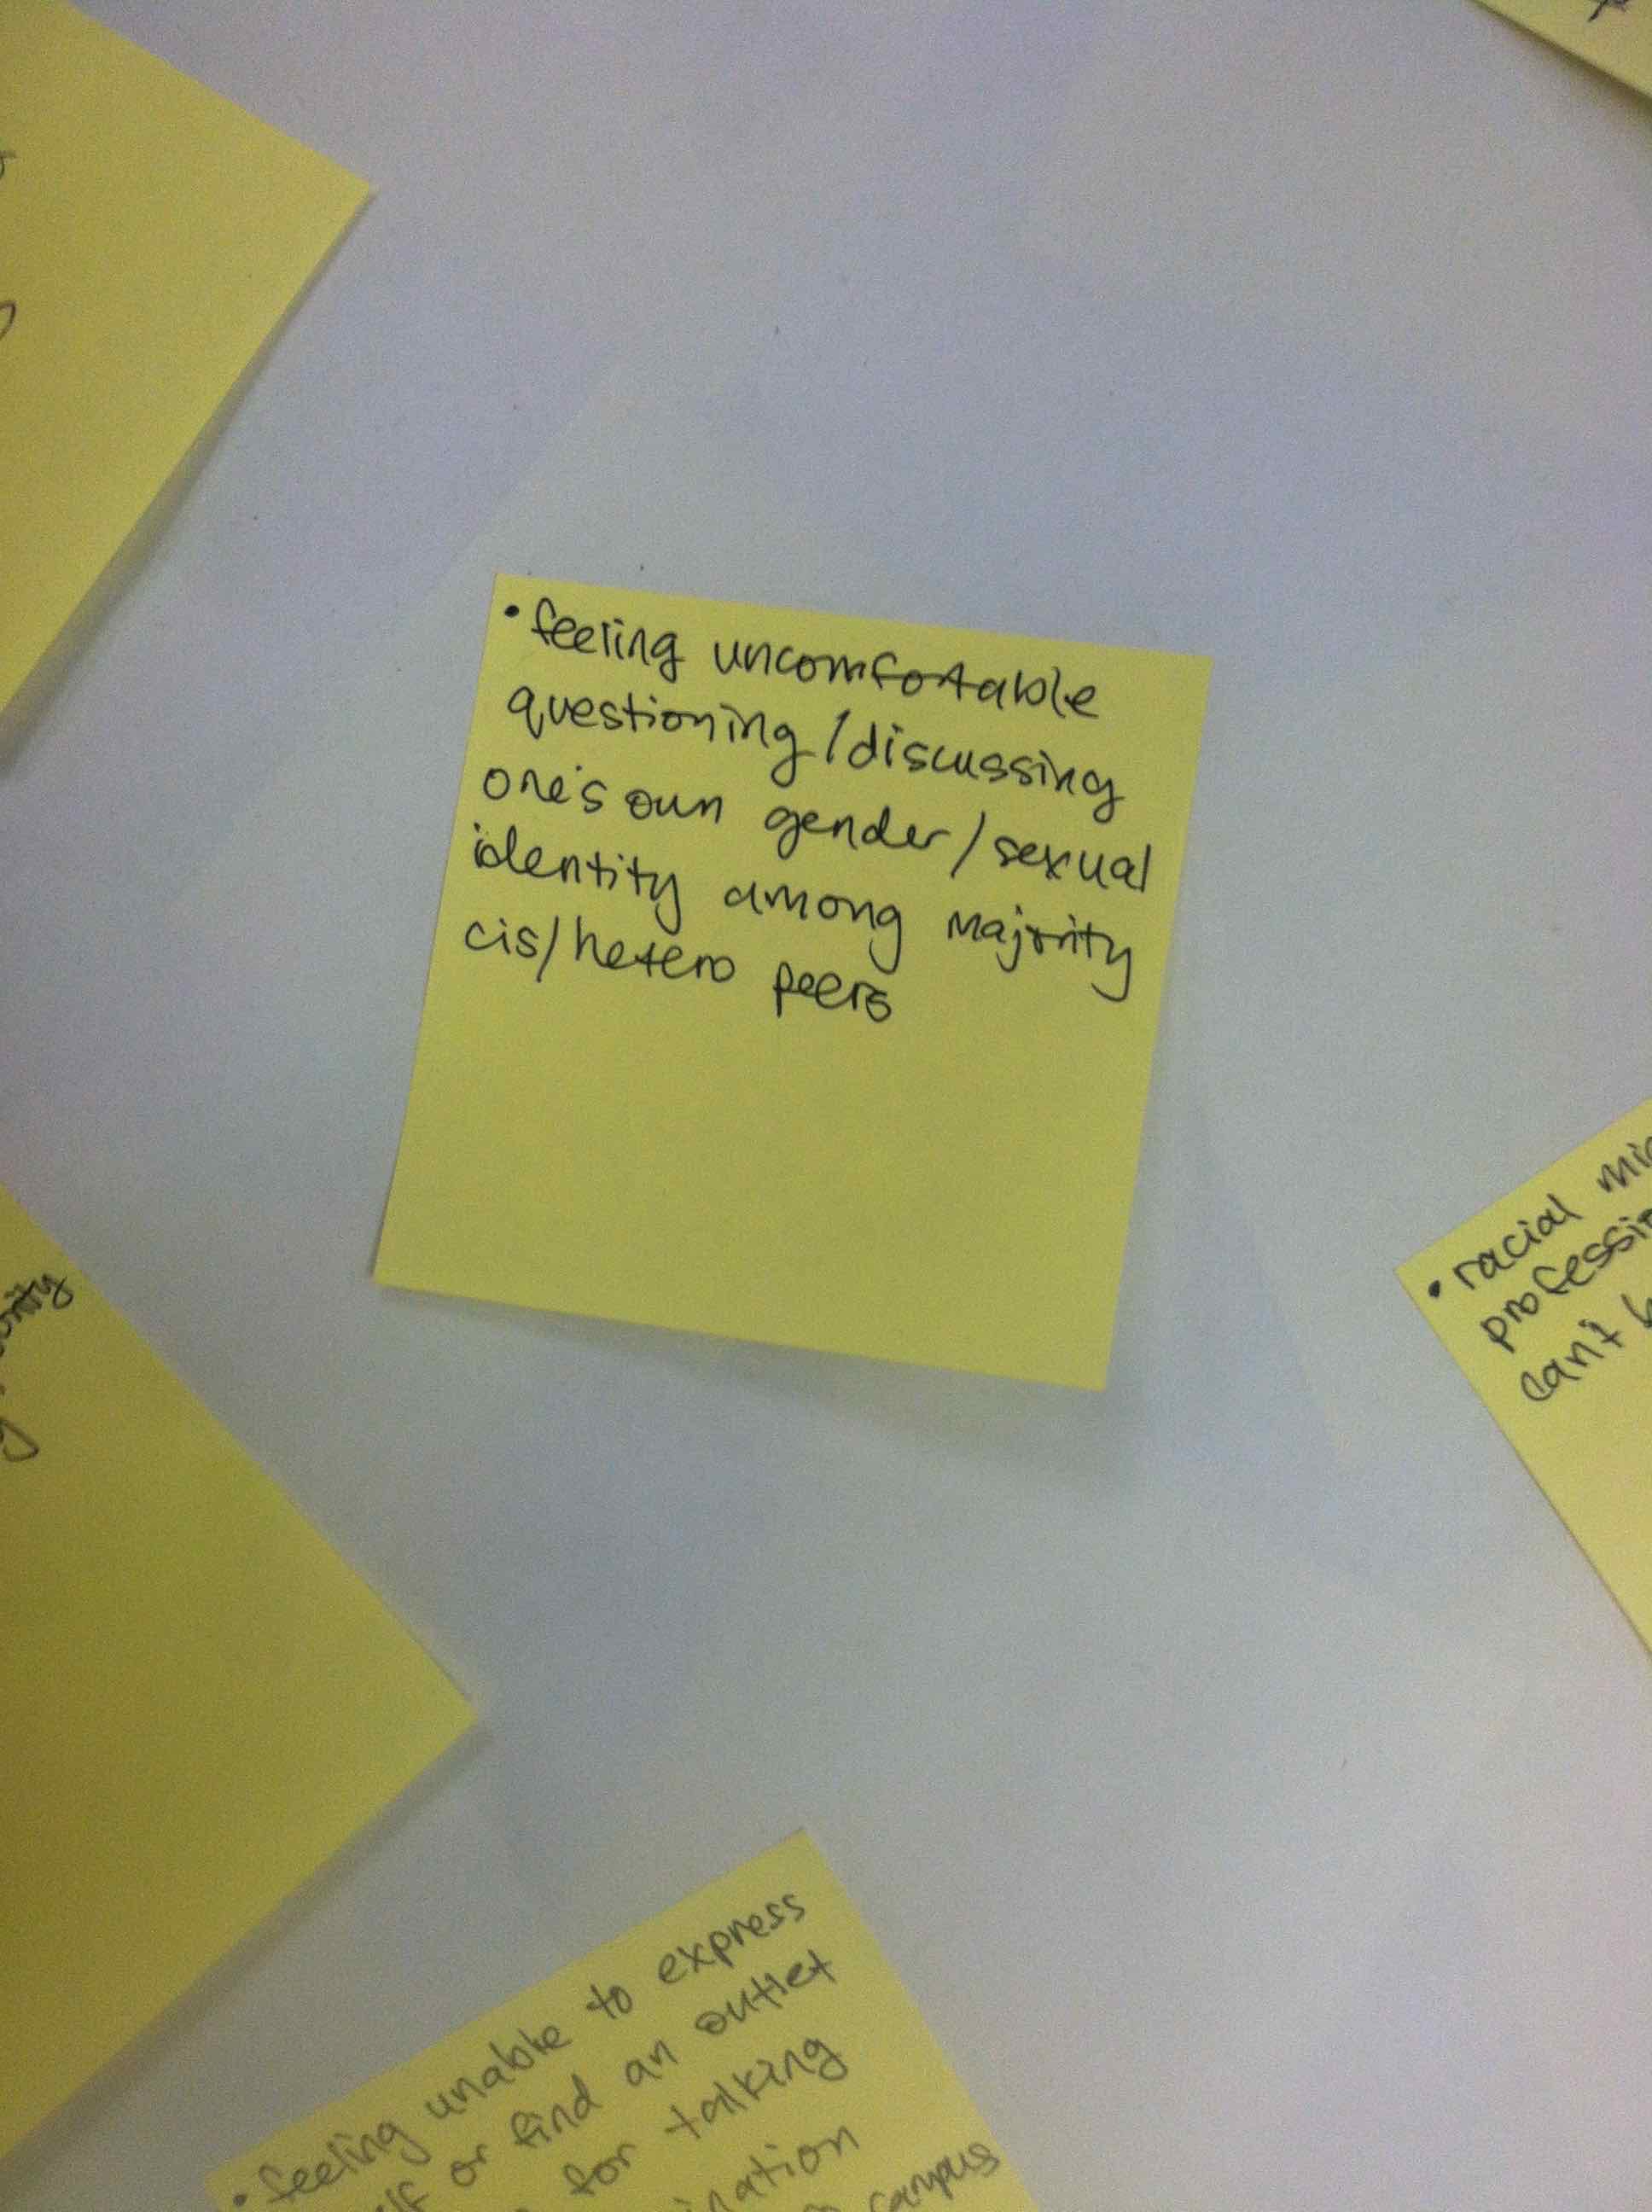 • feeling uncomfortable
questioning/discussing
one's own gender/sexual
identity among majority
cis/hetero peers
• racial
can't
• feeling unable to express
or find an outlet
for talking
campus